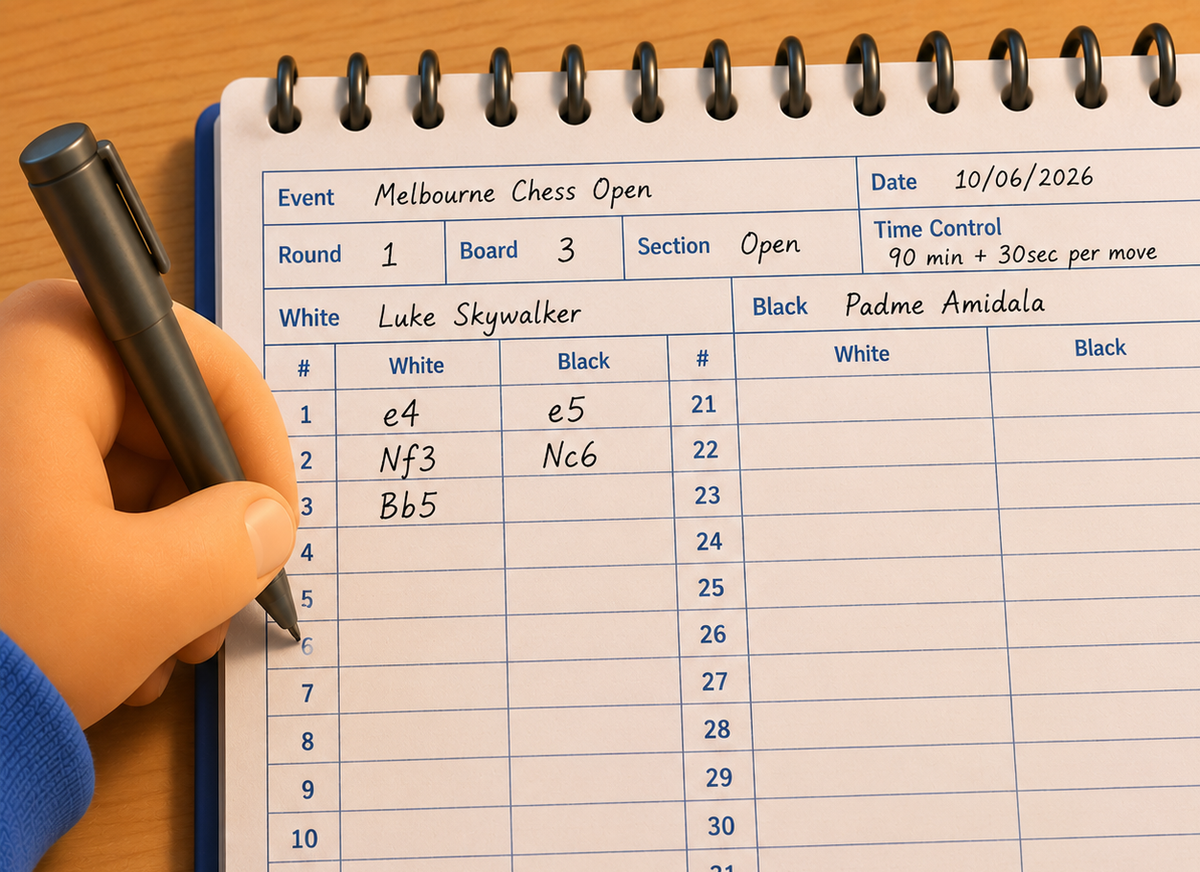 Event Melbourne Chess Open Date 10/06/2026
Round 1 Board 3 Section Open Time Control
90 min + 30sec per move
White Luke Skywalker Black Padme Amidala
# White Black # White Black
1 e4 e5 21
2 Nf3 Nc6 22
3 Bb5 23
4 24
5 25
6 26
7 27
8 28
9 29
10 30